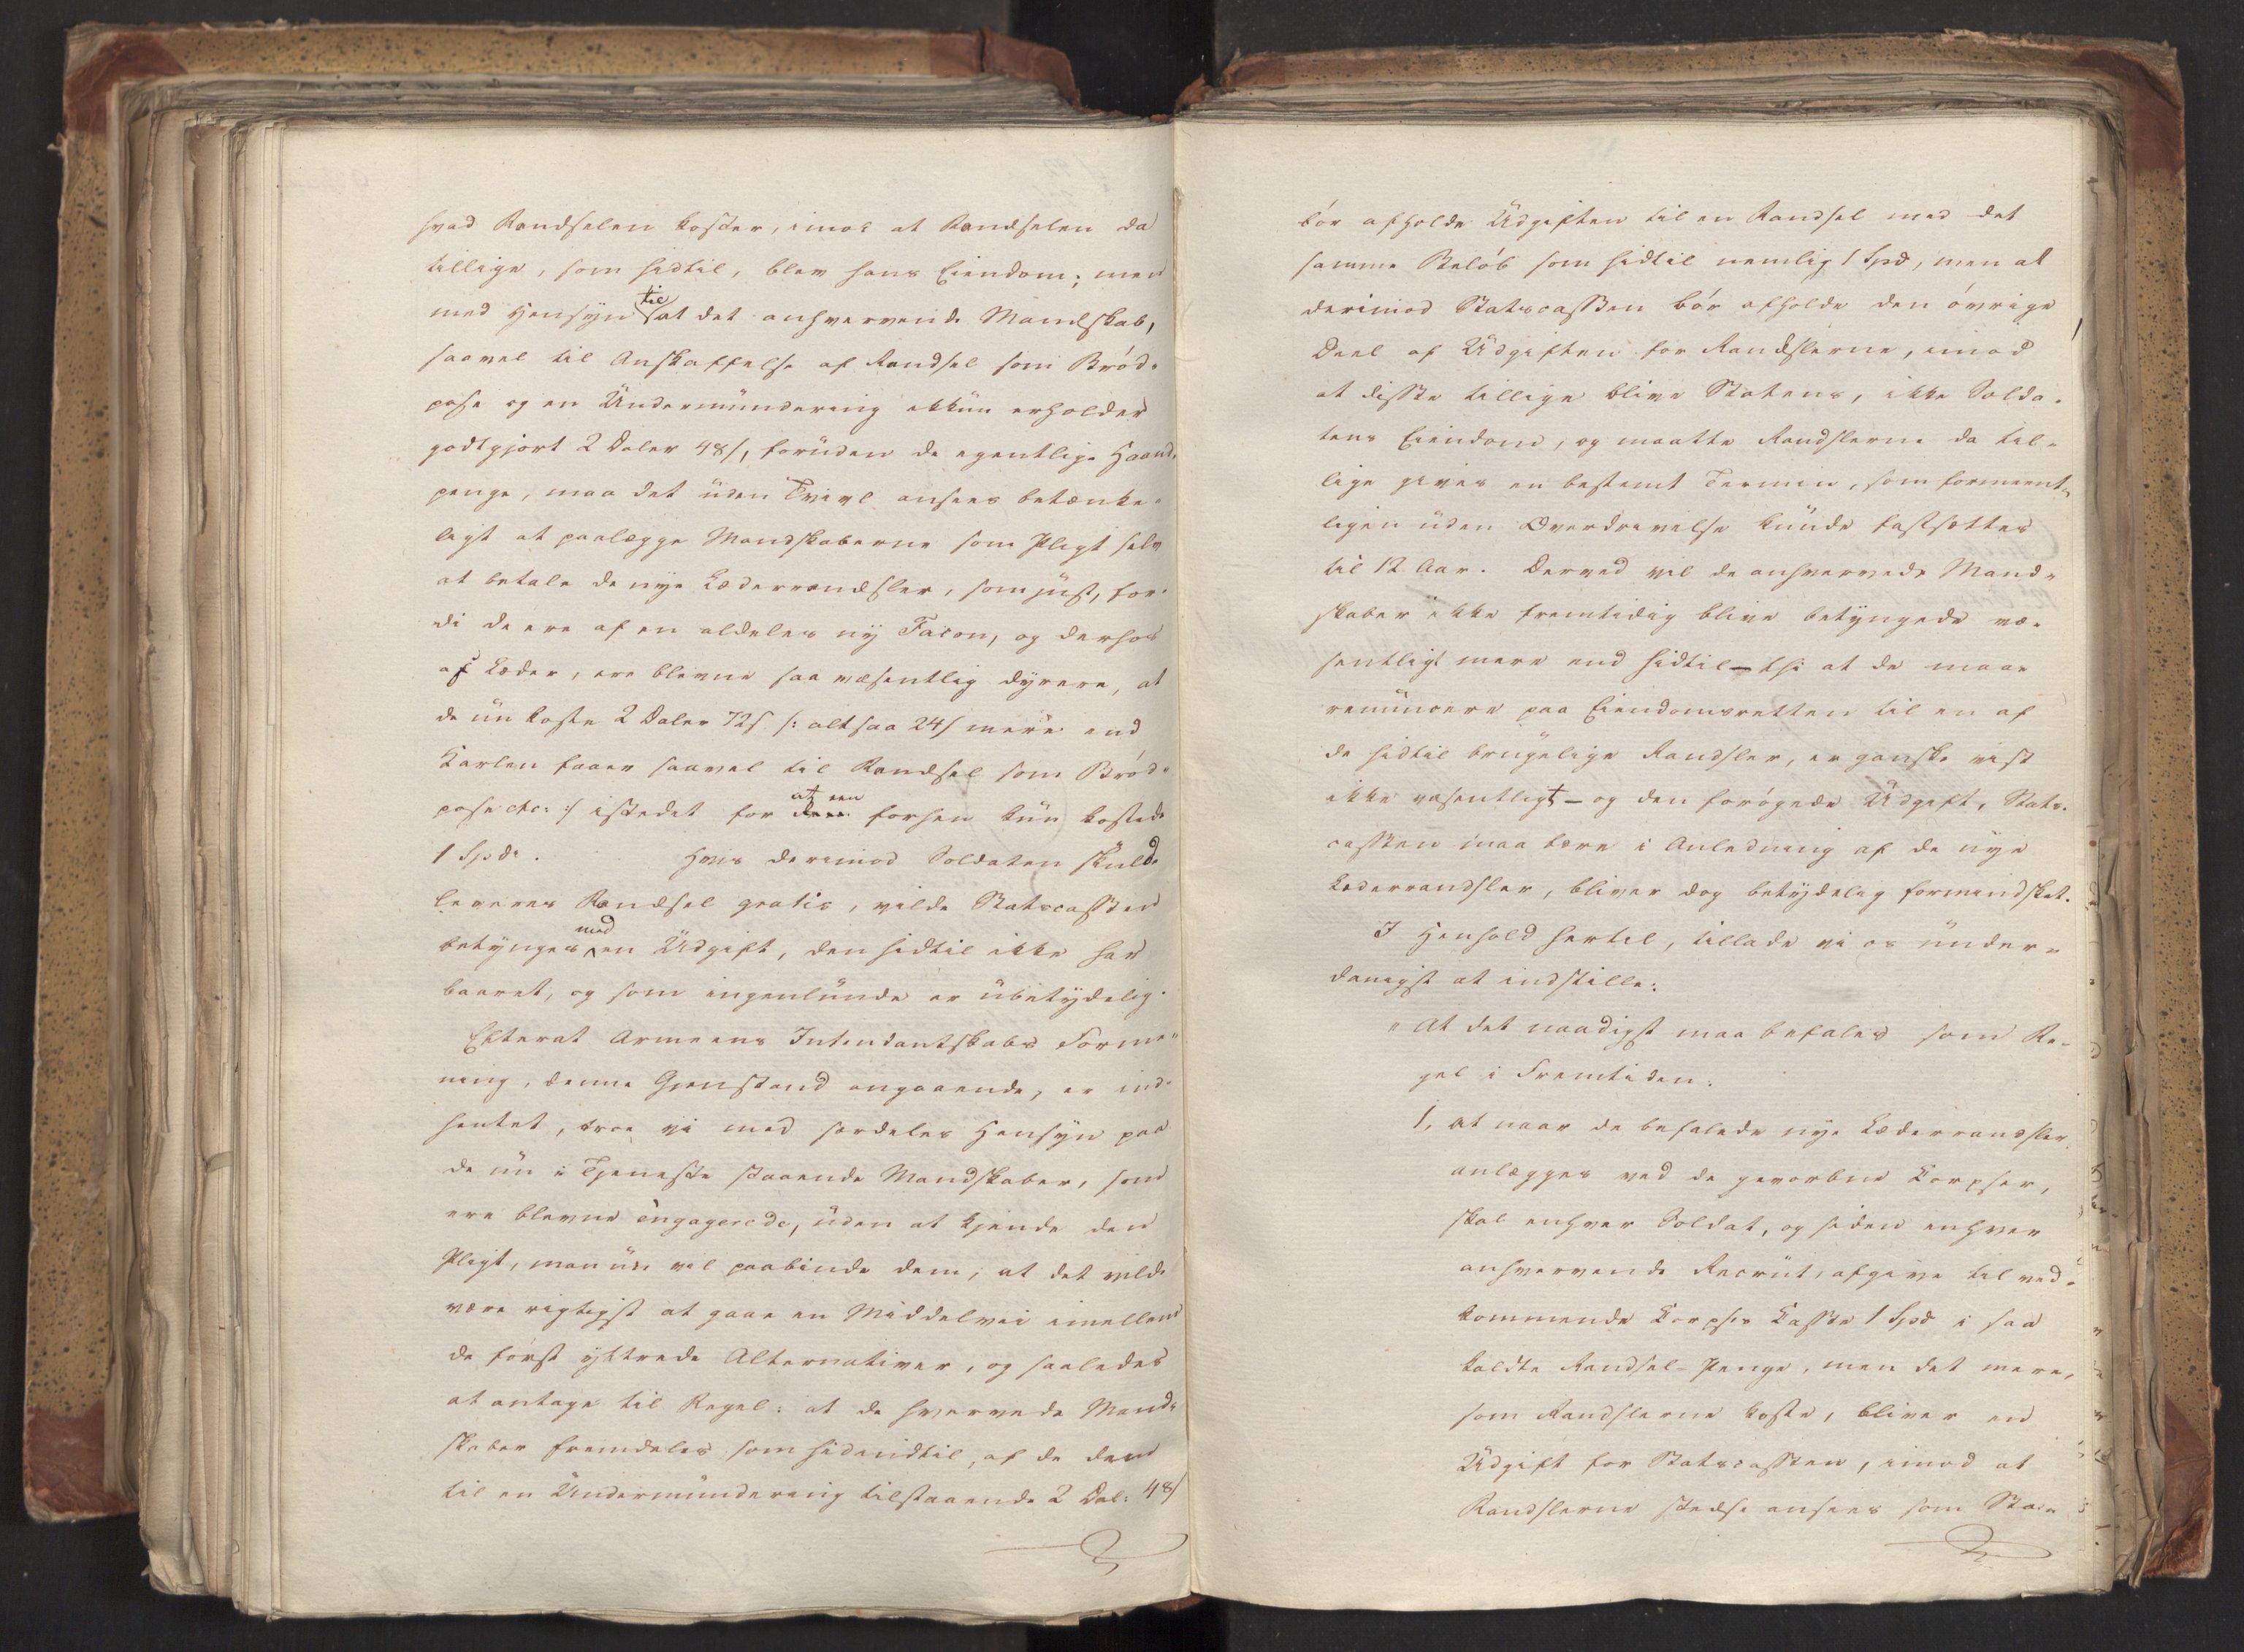 hvad Randselen koster, imod at Randselen da
tillige, som hidtil, blev hans Eiendom; men
med Hensyn til at det anhvervende Mandskab,
saavel til Anskaffelse af Randsel som Bröd-
pose og en Undermundering ikkun erholder
godtgjort 2 Daler 48/, foruden de egentlige Haand-
penge, maa det uden Tvivl ansees betænke-
ligt at paalægge Mandskaberne som Pligt selv
at betale de nye Læderrandsler, som just, for-
di de ere af en aldeles ny Facon, og derhos
af Læder, ere blevne saa væsentlig dyrere, at
de nu koste 2 Daler 72/ /: altsaa 24/ mere end
Karlen faaer saavel til Randsel som Bröd-
pose etc: :/ istedet for at een forhen kun kostede
1 Spd. Hvis derimod Soldaten skulde
leveres Randsel gratis, vilde Statscassen
betynges med en Udgift, den hidtil ikke har
baaret, og som ingenlunde er ubetydelig.
Efterat Armeens Intendantskabs Forme-
ning, denne Gjenstand angaaende, er ind-
hentet, troe vi med særdeles Hensyn paa
de nu i Tjeneste staaende Mandskaber, som
ere blevne engagerede, uden at kjende den
Pligt, man nu vil paabinde dem, at det vilde
være rigtigst at gaae en Middelvei imellem
de først yttrede Alternativer, og saaledes
at antage til Regel: at de hvervede Mand-
skaber fremdeles som hidindtil, af de dem
til en Undermundering tilstaaende 2 Dal: 48/
bör afholde Udgiften til en Randsel med det
samme Belöb som hidtil nemlig 1 Spd, men at
derimod Statscassen bör afholde den övrige
Deel af Udgiften for Randslerne, imod
at disse tillige blive Statens, ikke Solda-
tens Eiendom, og maatte Randslerne da til-
lige gives en bestemt Termin, som formeent-
ligen uden Overdrivelse kunde fastsættes
til 12 Aar. Derved vil de anhvervede Mand-
skaber ikke fremtidig blive betyngede væ-
sentligt mere end hidtil – thi at de maae
renuncere paa Eiendomsretten til en af
de hidtil brugelige Randsler, er ganske vist
ikke væsentligt – og den forögede Udgift, Stats-
cassen maa bære i Anledning af de nye
Læderrandsler, bliver dog betydelig formindsket.
I Henhold hertil, tillade vi os under-
danigst at indstille:
"At det naadigst maa befales som Re-
gel i Fremtiden:
1, at naar de befalede nye Læderrandsler
anlægges ved de gevorbne Corpser,
skal enhver Soldat, og siden enhver
anhvervende Recrut, afgive til ved-
kommende Corpses Casse 1 Spd i saa
kaldte Randsel-Penge, men det mere,
som Randslerne koste, bliver en
Udgift for Statscassen, imod at
Randslerne stedse ansees som Sta-